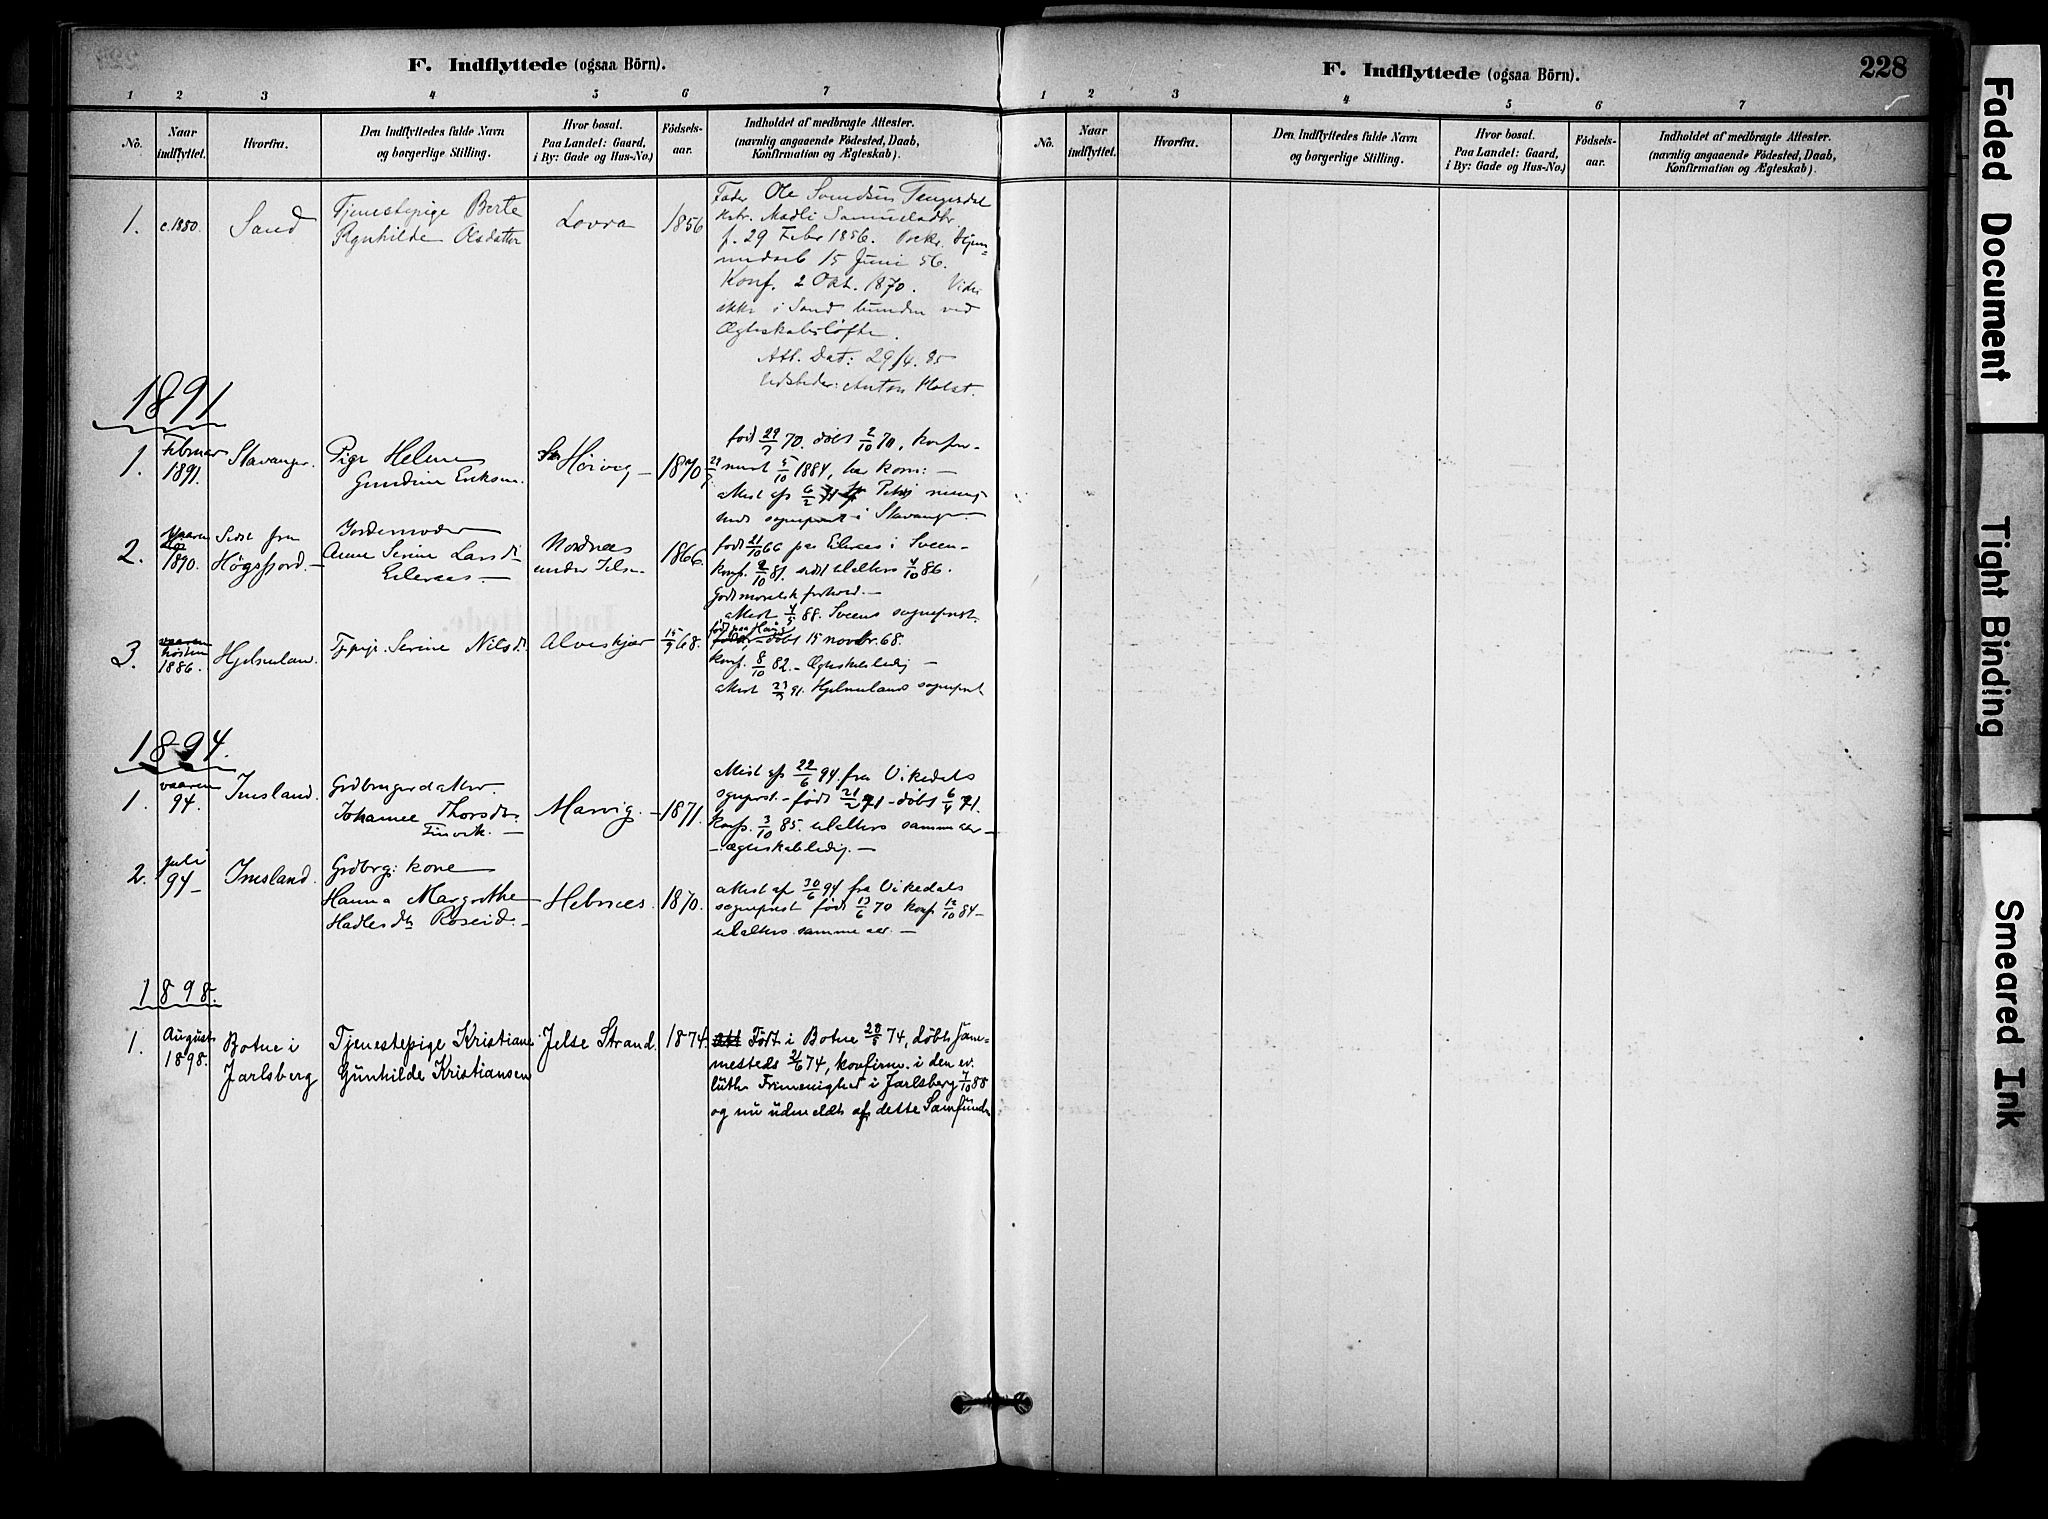 F. Indflyttede (ogsaa Börn).
1 2 3 4 5 6 7
No.
Naar indflyttet.
Hvorfra.
Den Indflyttedes fulde Navn
og borgerlige Stilling.
Hvor bosat.
Paa Landet: Gaard,
i By: Gade og Hus-No.)
Fødsels-
aar.
Indholdet af medbragte Attester.
(navnlig angaaende Födested, Daab,
Konfirmation og Ægteskab).
1. c. 1880. Sand
Tjenestepige Berte
Olsdatter
Lovra
1856
Fader Ole Svendsen Tengesdal
Madli Samuelsdtr
f. 29 Febr 1856.
15 Juni 56.
Konf. 2 Okt. 1870.
ikke i Sand bunden ved
Ægteskabsløfte.
Att. Dat: 29/4. 85
Udsteder: Anton Holst.
1891
1. Februar
1891.
Stavanger.
Pige Helene
Eriksen
Hørvig
1870
født 29/7 70. døbt 2/10 70, konfir-
meret 5/10 1884,
Attest af 6/2 91 Petri menig-
heds sogneprest i Stavanger
2. 1890.
Sidst fra
Høgsfjord.
Jordemoder
Anne Serine Larsdr
Eileraas
Nordnes
under Jelse
1866.
født 21/10 66 paa Eileraas i Sveen
konf. 2/10 81. sidst til alters 4/10 86.
Godt moralsk forhold.
Attest 88. Sveens sogneprest.
3. høsten
1886.
Hjelmeland.
Tjpige. Serine Nilsdr
Alveskjær
15/9 68.
døbt 15 novbr. 68.
konf. 8/10 82. Ægteskabsledig
Attest 91. Hjelmelands sogneprest
1894.
1. vaaren
94.
Imsland.
Grdbrugerdatter.
Johanne Thorsdr.
Tinvik.
Marvig.
1871.
Attest af 22/6 94. fra Vikedals
sogneprst. født 21/2 71 døbt 6/4 71.
konf. 3/10 85. til alters samme aar
ægteskabsledig.
2. Juli
94
Imsland.
Grdbrg: kone
Hanna Margrethe
Hadlesdtr Røseid.
Hebnes.
1870.
Attest af 30/6 94 fra Vikedals
sogneprest født 13/6 70 konf 12/10 84
til alters samme aar.
1898.
1. August
1898.
Botne i
Jarlsberg
Tjenestepige Kristiane
Gunhilde Kristiansen
Jelse Strand.
1874.
Født i Botne 28/8 74, døbt samme-
mesteds 74, konfirm. i den ev.
luth. Frimenighet i Jarlsberg 7/10 88
og nu udmeldt af dette Samfund
F. Indflyttede (ogsaa Börn).
228
1 2 3 4 5 6 7
No.
Naar indflyttet.
Hvorfra.
Den Indflyttedes fulde Navn
og borgerlige Stilling.
Hvor bosat.
Paa Landet: Gaard,
i By: Gade og Hus-No.)
Fødsels-
aar.
Indholdet af medbragte Attester.
(navnlig angaaende Födested, Daab,
Konfirmation og Ægteskab).
Faded Document
Tight Binding
Smeared Ink